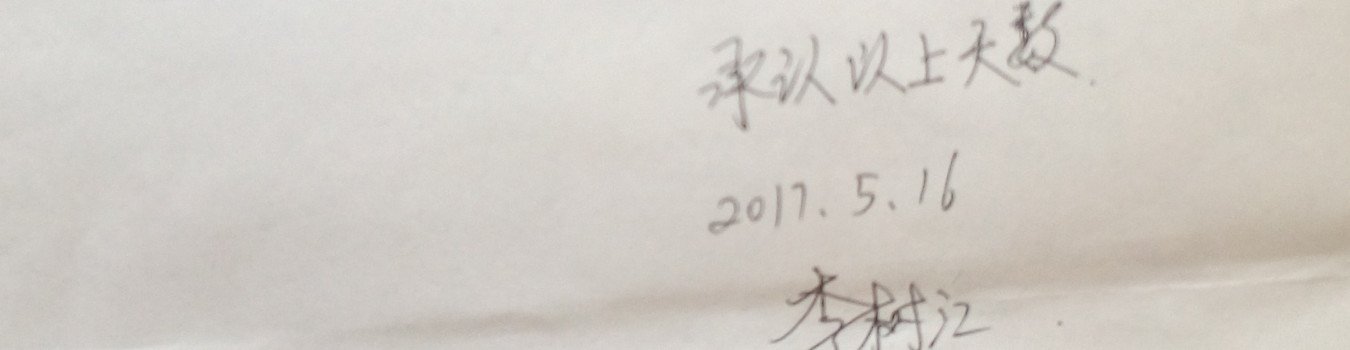 承认以上天数.
2017.5.16
李树江